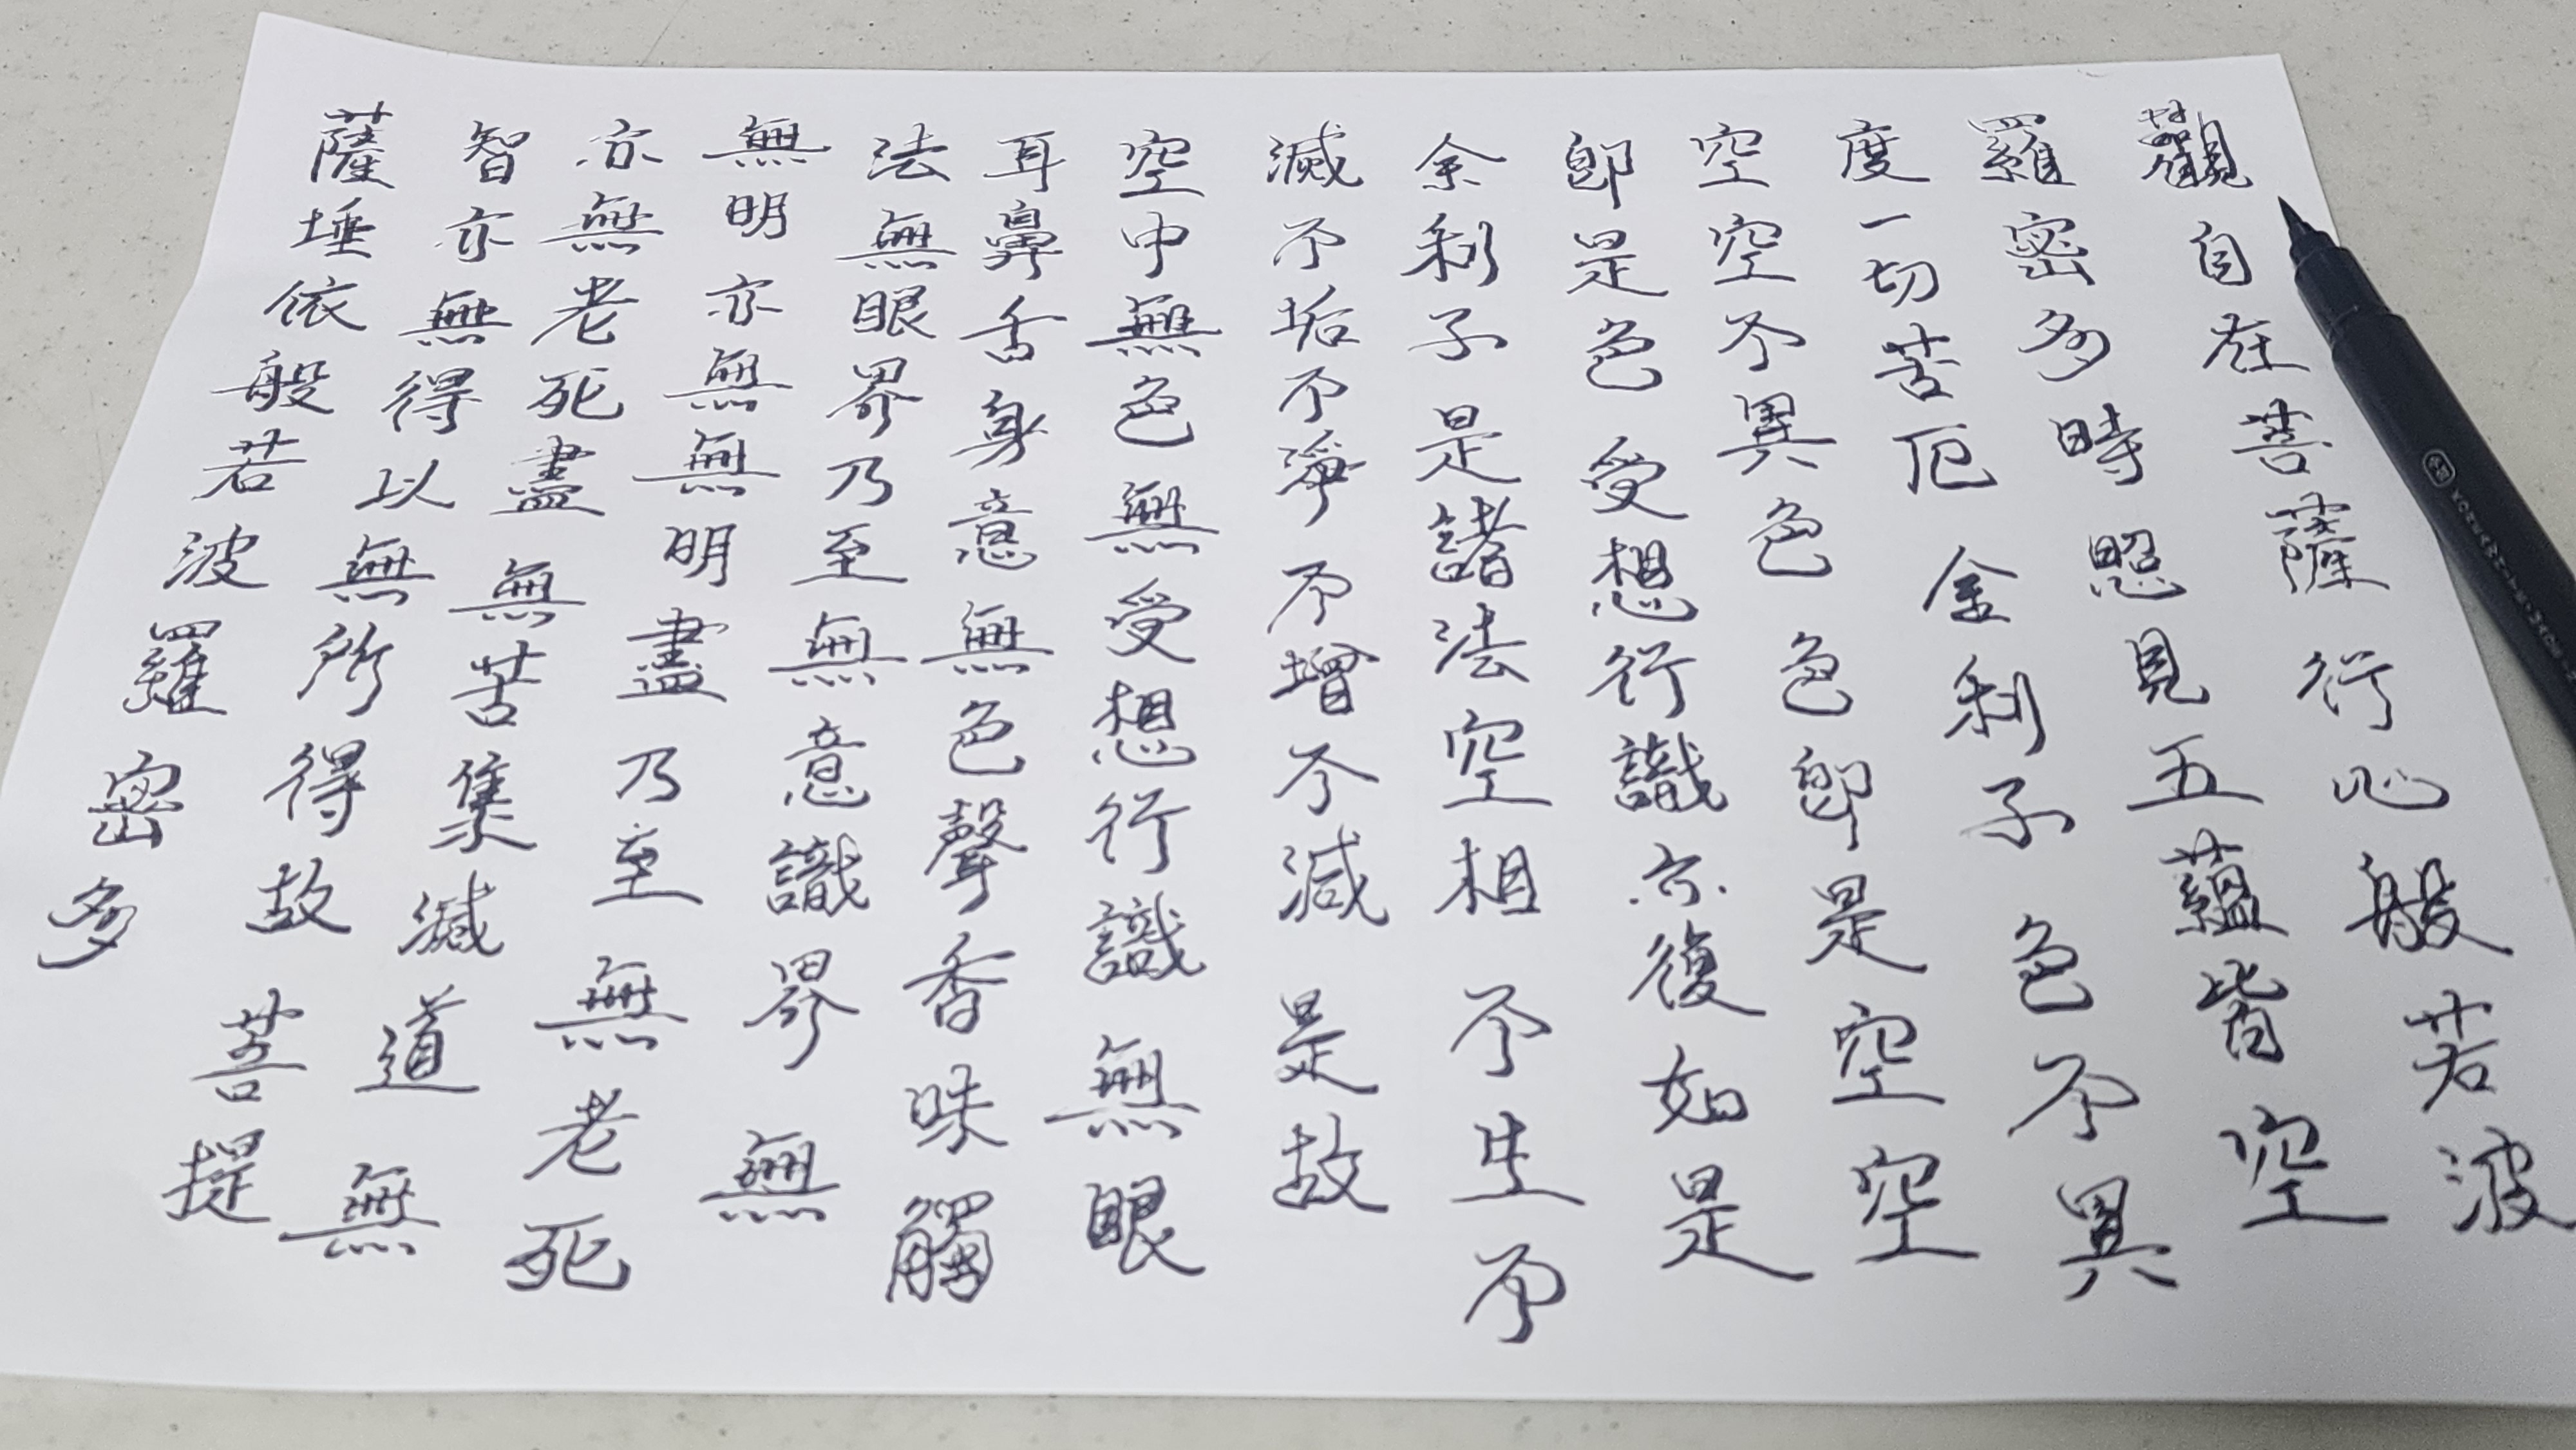 觀自在菩薩行心般若波
羅密多時照見五蘊皆空
度一切苦厄舍利子色不異
空空不異色色即是空空
即是色受想行識亦復如是
舍利子是諸法空相不生不
滅不垢不淨不增不減是故
空中無色無受想行識無眼
耳鼻舌身意無色聲香味觸
法無眼界乃至無意識界無
無明亦無無明盡乃至無老死
亦無老死盡無苦集滅道無
智亦無得以無所得故菩提
薩埵依般若波羅密多